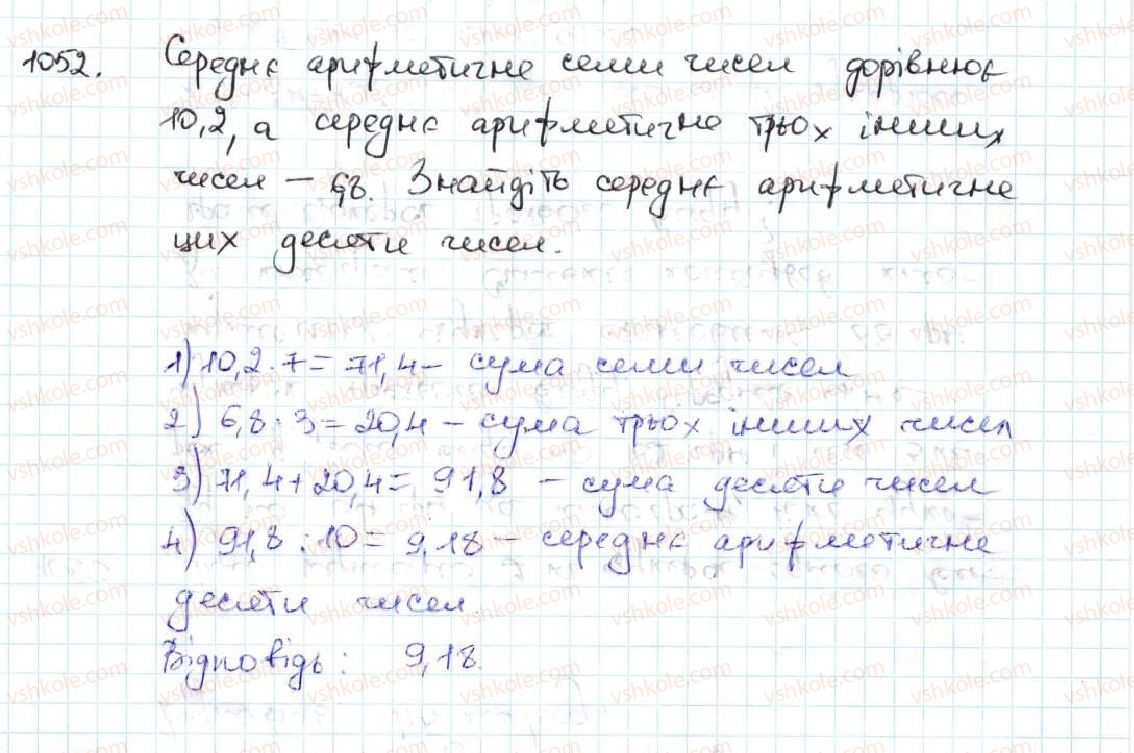 1052. Середнє арифметичне семи чисел дорівнює
10,2, а середнє арифметичне трьох інших
чисел – 6,8. Знайдіть середнє арифметичне
цих десяти чисел.
1) 10,2 · 7 = 71,4 – сума семи чисел
2) 6,8 · 3 = 20,4 – сума трьох інших чисел
3) 71,4 + 20,4 = 91,8 – сума десяти чисел
4) 91,8 : 10 = 9,18 – середнє арифметичне
десяти чисел.
Відповідь: 9,18.